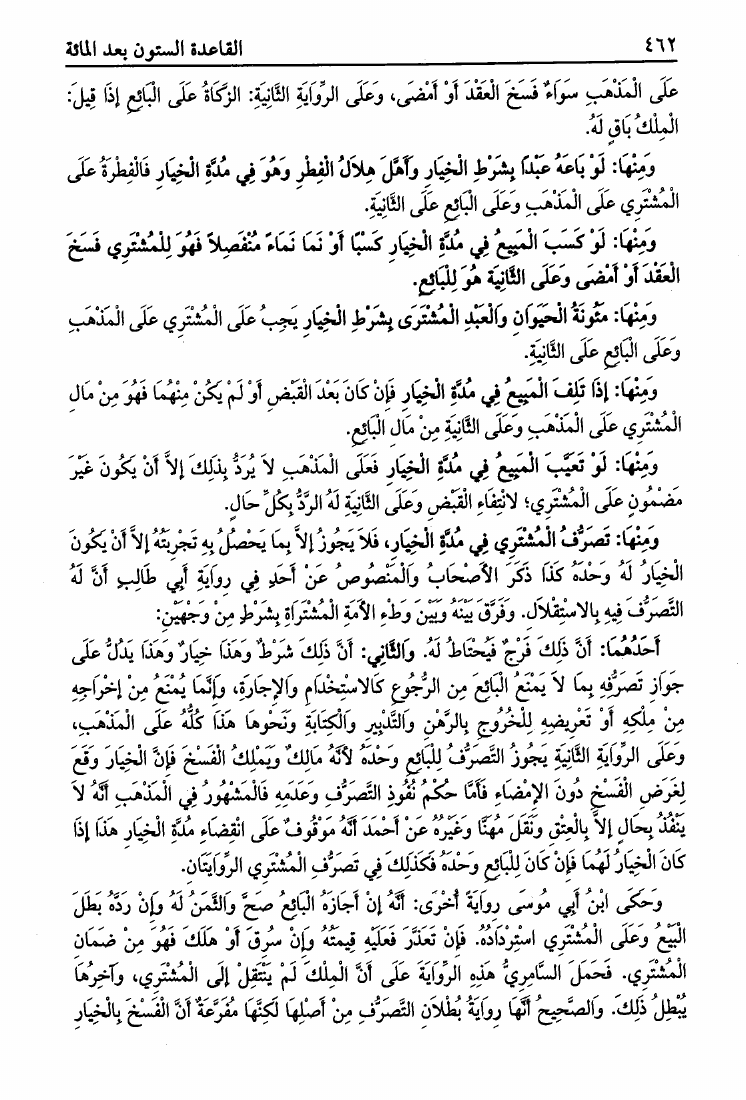 ٤٦٢ القاعدة الستون بعد المائة
عَلَى الْمَذْهَبِ سَوَاءٌ فَسَخَ الْعَقْدَ أَوْ أَمْضَى، وَعَلَى الرِّوَايَةِ الثَّانِيَةِ: الزَّكَاةُ عَلَى الْبَائِعِ إِذَا قِيلَ:
الْمِلْكُ بَاقٍ لَهُ.
وَمِنْهَا: لَوْ بَاعَهُ عَبْدًا بِشَرْطِ الْخِيَارِ وَأَهَلَّ هِلَالُ الْفِطْرِ وَهُوَ فِي مُدَّةِ الْخِيَارِ فَالْفِطْرَةُ عَلَى
الْمُشْتَرِي عَلَى الْمَذْهَبِ وَعَلَى الْبَائِعِ عَلَى الثَّانِيَةِ.
وَمِنْهَا: لَوْ كَسَبَ الْمَبِيعُ فِي مُدَّةِ الْخِيَارِ كَسْبًا أَوْ نَمَا نَمَاءً مُنْفَصِلاً فَهُوَ لِلْمُشْتَرِي فَسَخَ
الْعَقْدَ أَوْ أَمْضَى وَعَلَى الثَّانِيَةِ هُوَ لِلْبَائِعِ.
وَمِنْهَا: مَئُونَةُ الْحَيَوَانِ وَالْعَبْدِ الْمُشْتَرَى بِشَرْطِ الْخِيَارِ يَجِبُ عَلَى الْمُشْتَرِي عَلَى الْمَذْهَبِ
وَعَلَى الْبَائِعِ عَلَى الثَّانِيَةِ.
وَمِنْهَا: إِذَا تَلِفَ الْمَبِيعُ فِي مُدَّةِ الْخِيَارِ فَإِنْ كَانَ بَعْدَ الْقَبْضِ أَوْ لَمْ يَكُنْ مِنْهُمَا فَهُوَ مِنْ مَالِ
الْمُشْتَرِي عَلَى الْمَذْهَبِ وَعَلَى الثَّانِيَةِ مِنْ مَالِ الْبَائِعِ.
وَمِنْهَا: لَوْ تَعَيَّبَ الْمَبِيعُ فِي مُدَّةِ الْخِيَارِ فَعَلَى الْمَذْهَبِ لاَ يُرَدُّ بِذَلِكَ إِلاَّ أَنْ يَكُونَ غَيْرَ
مَضْمُونٍ عَلَى الْمُشْتَرِي؛ لانْتِفَاءِ الْقَبْضِ وَعَلَى الثَّانِيَةِ لَهُ الرَّدُّ بِكُلِّ حَالٍ.
وَمِنْهَا: تَصَرُّفُ الْمُشْتَرِي فِي مُدَّةِ الْخِيَارِ، فَلاَ يَجُوزُ إِلاَّ بِمَا يَحْصُلُ بِهِ تَجْرِبَتُهُ إِلاَّ أَنْ يَكُونَ
الْخِيَارُ لَهُ وَحْدَهُ كَذَا ذَكَرَ الأَصْحَابُ وَالْمَنْصُوصُ عَنْ أَحْمَدَ فِي رِوَايَةِ أَبِي طَالِبٍ أَنَّ لَهُ
التَّصَرُّفَ فِيهِ بِالاسْتِقْلَالِ. وَفَرَّقَ بَيْنَهُ وَبَيْنَ وَطْءِ الأَمَةِ الْمُشْتَرَاةِ بِشَرْطٍ مِنْ وَجْهَيْنِ:
أَحَدُهُمَا: أَنَّ ذَلِكَ فَرْجٌ فَيُحْتَاطُ لَهُ. وَالثَّانِي: أَنَّ ذَلِكَ شَرْطٌ وَهَذَا خِيَارٌ وَهَذَا يَدُلُّ عَلَى
جَوَازِ تَصَرُّفِهِ بِمَا لاَ يَمْنَعُ الْبَائِعَ مِنَ الرُّجُوعِ كَالاسْتِخْدَامِ وَالإِجَارَةِ، وَإِنَّمَا يُمْنَعُ مِنْ إِخْرَاجِهِ
مِنْ مِلْكِهِ أَوْ تَعْرِيضِهِ لِلْخُرُوجِ بِالرَّهْنِ وَالتَّدْبِيرِ وَالْكِتَابَةِ وَنَحْوِهَا هَذَا كُلُّهُ عَلَى الْمَذْهَبِ،
وَعَلَى الرِّوَايَةِ الثَّانِيَةِ يَجُوزُ التَّصَرُّفُ لِلْبَائِعِ وَحْدَهُ لأَنَّهُ مَالِكٌ وَيَمْلِكُ الْفَسْخَ فَإِنَّ الْخِيَارَ وَقَعَ
لِغَرَضِ الْفَسْخِ دُونَ الإِمْضَاءِ فَأَمَّا حُكْمُ نُفُوذِ التَّصَرُّفِ وَعَدَمِهِ فَالْمَشْهُورُ فِي الْمَذْهَبِ أَنَّهُ لاَ
يَنْفُذُ بِحَالٍ إِلاَّ بِالْعِتْقِ وَنَقَلَ مُهَنَّا وَغَيْرُهُ عَنْ أَحْمَدَ أَنَّهُ مَوْقُوفٌ عَلَى انْقِضَاءِ مُدَّةِ الْخِيَارِ هَذَا إِذَا
كَانَ الْخِيَارُ لَهُمَا فَإِنْ كَانَ لِلْبَائِعِ وَحْدَهُ فَكَذَلِكَ فِي تَصَرُّفِ الْمُشْتَرِي الرِّوَايَتَانِ.
وَحَكَى ابْنُ أَبِي مُوسَى رِوَايَةً أُخْرَى: أَنَّهُ إِنْ أَجَازَهُ الْبَائِعُ صَحَّ وَالثَّمَنُ لَهُ وَإِنْ رَدَّهُ بَطَلَ
الْبَيْعُ وَعَلَى الْمُشْتَرِي اسْتِرْدَادُهُ. فَإِنْ تَعَذَّرَ فَعَلَيْهِ قِيمَتُهُ وَإِنْ سُرِقَ أَوْ هَلَكَ فَهُوَ مِنْ ضَمَانِ
الْمُشْتَرِي. فَحَمَلَ السَّامِرِيُّ هَذِهِ الرِّوَايَةَ عَلَى أَنَّ الْمِلْكَ لَمْ يَنْتَقِلْ إِلَى الْمُشْتَرِي، وَآخِرُهَا
يُبْطِلُ ذَلِكَ. وَالصَّحِيحُ أَنَّهَا رِوَايَةُ بُطْلَانِ التَّصَرُّفِ مِنْ أَصْلِهَا لَكِنَّهَا مُفَرَّعَةٌ أَنَّ الْفَسْخَ بِالْخِيَارِ